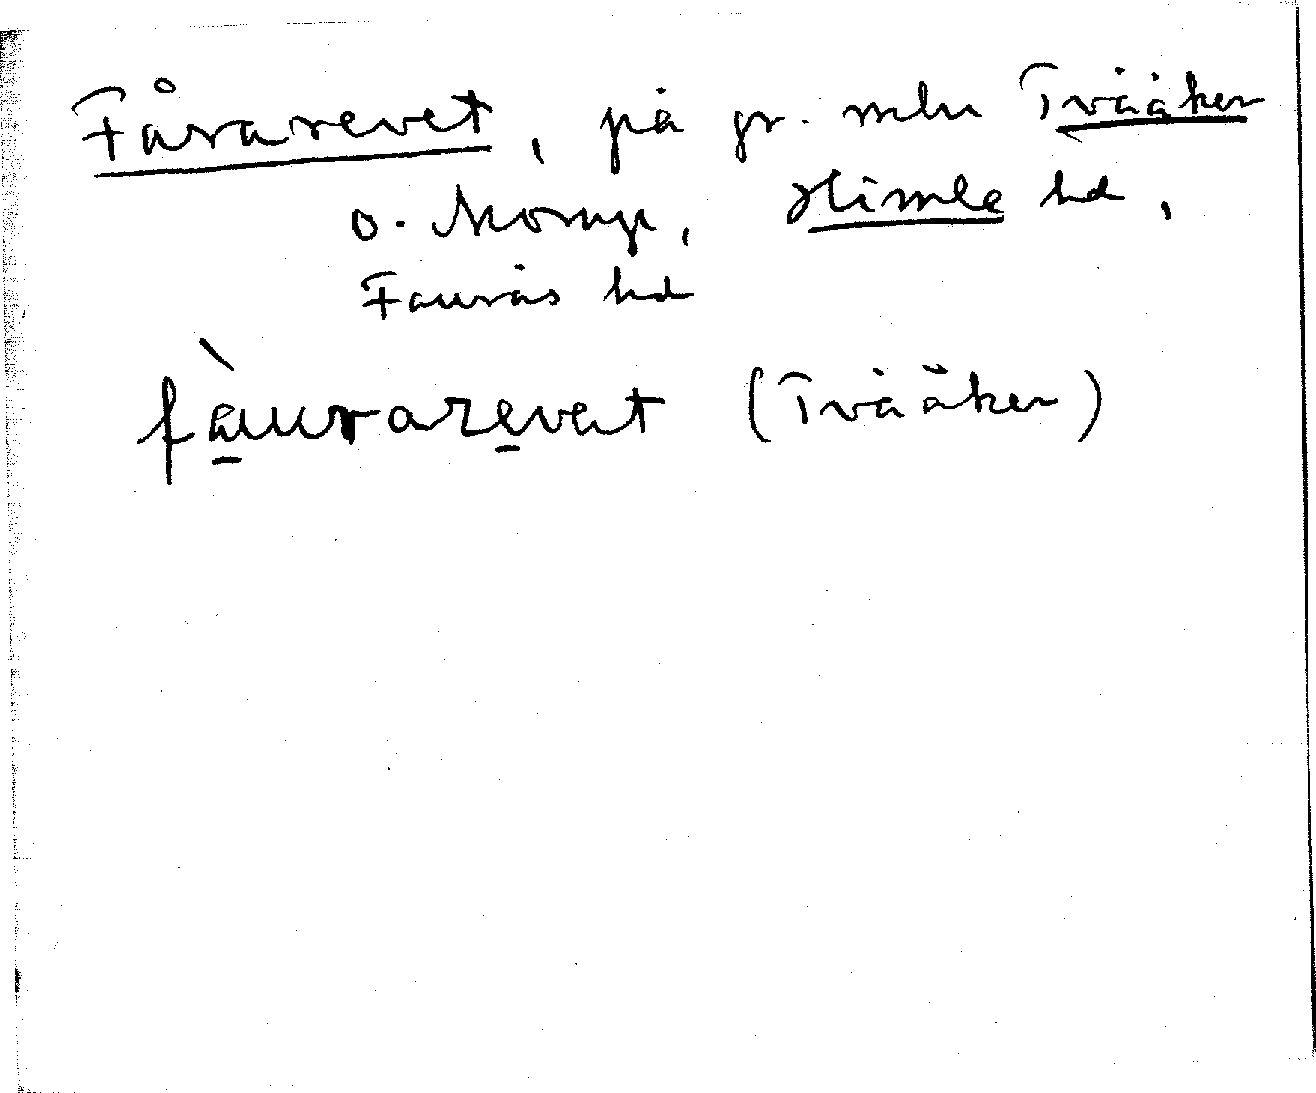 Fårarevet, på gr. mln Tvååker
o. Morup, Himle hd,
Faurås hd
fàuvrarevet (Tvååker)